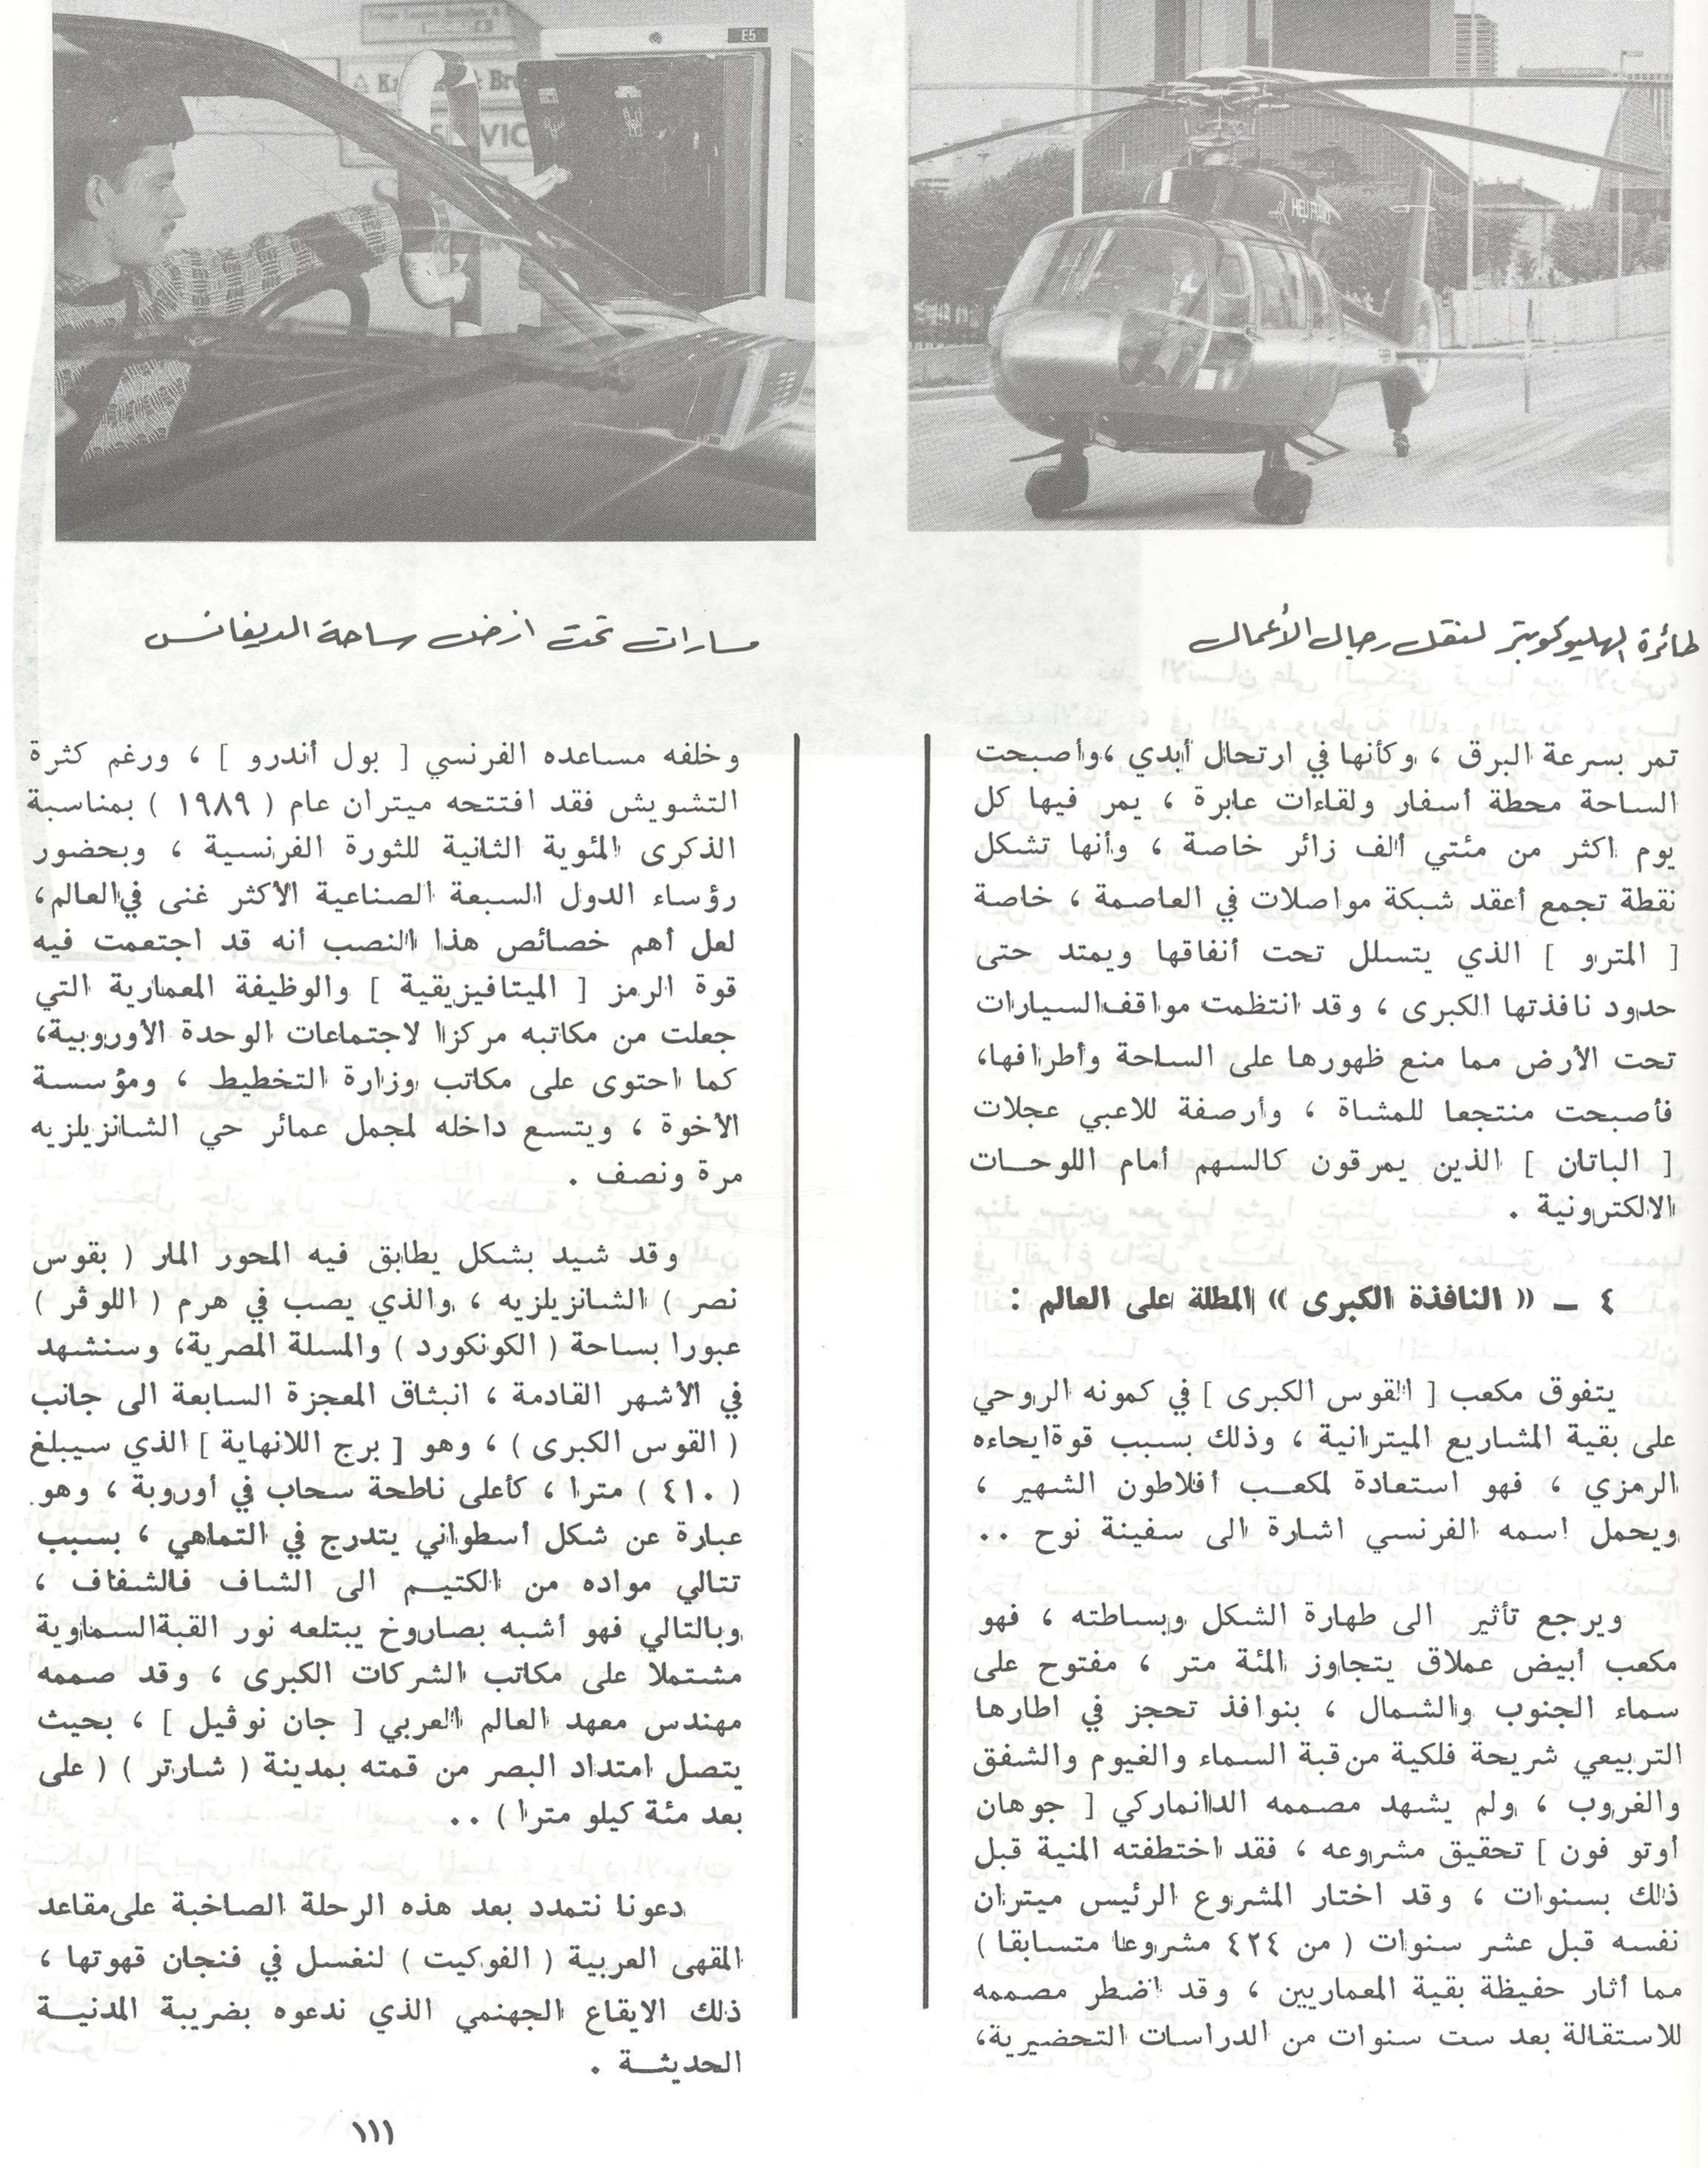 E5
SERVIC
HELIFRANCE
طائرة الهليوكوبتر لنقل رجال الأعمال
مسارات تحت ارض ساحة الديفانس
تمر بسرعة البرق ، وكأنها في ارتحال أبدي ،وأصبحت
الساحة محطة أسفار ولقاءات عابرة ، يمر فيها كل
يوم اكثر من مئتي ألف زائر خاصة ، وأنها تشكل
نقطة تجمع أعقد شبكة مواصلات في العاصمة ، خاصة
[ المترو ] الذي يتسلل تحت أنفاقها ويمتد حتى
حدود نافذتها الكبرى ، وقد انتظمت مواقف السيارات
تحت الأرض مما منع ظهورها على الساحة وأطرافها،
فأصبحت منتجعا للمشاة ، وأرصفة للاعبي عجلات
[ الباتان ] الذين يمرقون كالسهم أمام اللوحات
الالكترونية .
٤ ــ « النافذة الكبرى » المطلة على العالم :
يتفوق مكعب [ القوس الكبرى ] في كمونه الروحي
على بقية المشاريع الميترانية ، وذلك بسبب قوة ايحاءه
الرمزي ، فهو استعادة لمكعب أفلاطون الشهير ،
ويحمل اسمه الفرنسي اشارة الى سفينة نوح ..
ويرجع تأثير الى طهارة الشكل وبساطته ، فهو
مكعب أبيض عملاق يتجاوز المئة متر ، مفتوح على
سماء الجنوب والشمال ، بنوافذ تحجز في اطارها
التربيعي شريحة فلكية من قبة السماء والغيوم والشفق
والغروب ، ولم يشهد مصممه الدانماركي [ جوهان
أوتو فون ] تحقيق مشروعه ، فقد اختطفته المنية قبل
ذلك بسنوات ، وقد اختار المشروع الرئيس ميتران
نفسه قبل عشر سنوات ( من ٤٢٤ مشروعا متسابقا )
مما أثار حفيظة بقية المعماريين ، وقد اضطر مصممه
للاستقالة بعد ست سنوات من الدراسات التحضيرية،
وخلفه مساعده الفرنسي [ بول أندرو ] ، ورغم كثرة
التشويش فقد افتتحه ميتران عام ( ١٩٨٩ ) بمناسبة
الذكرى المئوية الثانية للثورة الفرنسية ، وبحضور
رؤساء الدول السبعة الصناعية الأكثر غنى في العالم،
لعل أهم خصائص هذا النصب أنه قد اجتعمت فيه
قوة الرمز [ الميتافيزيقية ] والوظيفة المعمارية التي
جعلت من مكاتبه مركزا لاجتماعات الوحدة الأوروبية،
كما احتوى على مكاتب وزارة التخطيط ، ومؤسسة
الأخوة ، ويتسع داخله لمجمل عمائر حي الشانزيلزيه
مرة ونصف .
وقد شيد بشكل يطابق فيه المحور المار ( بقوس
نصر ) الشانزيلزيه ، والذي يصب في هرم ( اللوڤر )
عبورا بساحة ( الكونكورد ) والمسلة المصرية، وسنشهد
في الأشهر القادمة ، انبثاق المعجزة السابعة الى جانب
( القوس الكبرى ) ، وهو [ برج اللانهاية ] الذي سيبلغ
( ٤١٠ ) مترا ، كأعلى ناطحة سحاب في أوروبة ، وهو
عبارة عن شكل أسطواني يتدرج في التماهي ، بسبب
تتالي مواده من الكتيم الى الشاف فالشفاف ،
وبالتالي فهو أشبه بصاروخ يبتلعه نور القبة السماوية
مشتملا على مكاتب الشركات الكبرى ، وقد صممه
مهندس معهد العالم العربي [ جان نوڤيل ] ، بحيث
يتصل امتداد البصر من قمته بمدينة ( شارتر ) ( على
بعد مئة كيلو مترا ) ..
دعونا نتمدد بعد هذه الرحلة الصاخبة على مقاعد
المقهى العربية ( الفوكيت ) لنغسل في فنجان قهوتها ،
ذلك الايقاع الجهنمي الذي ندعوه بضريبة المدنية
الحديثة .
١١١